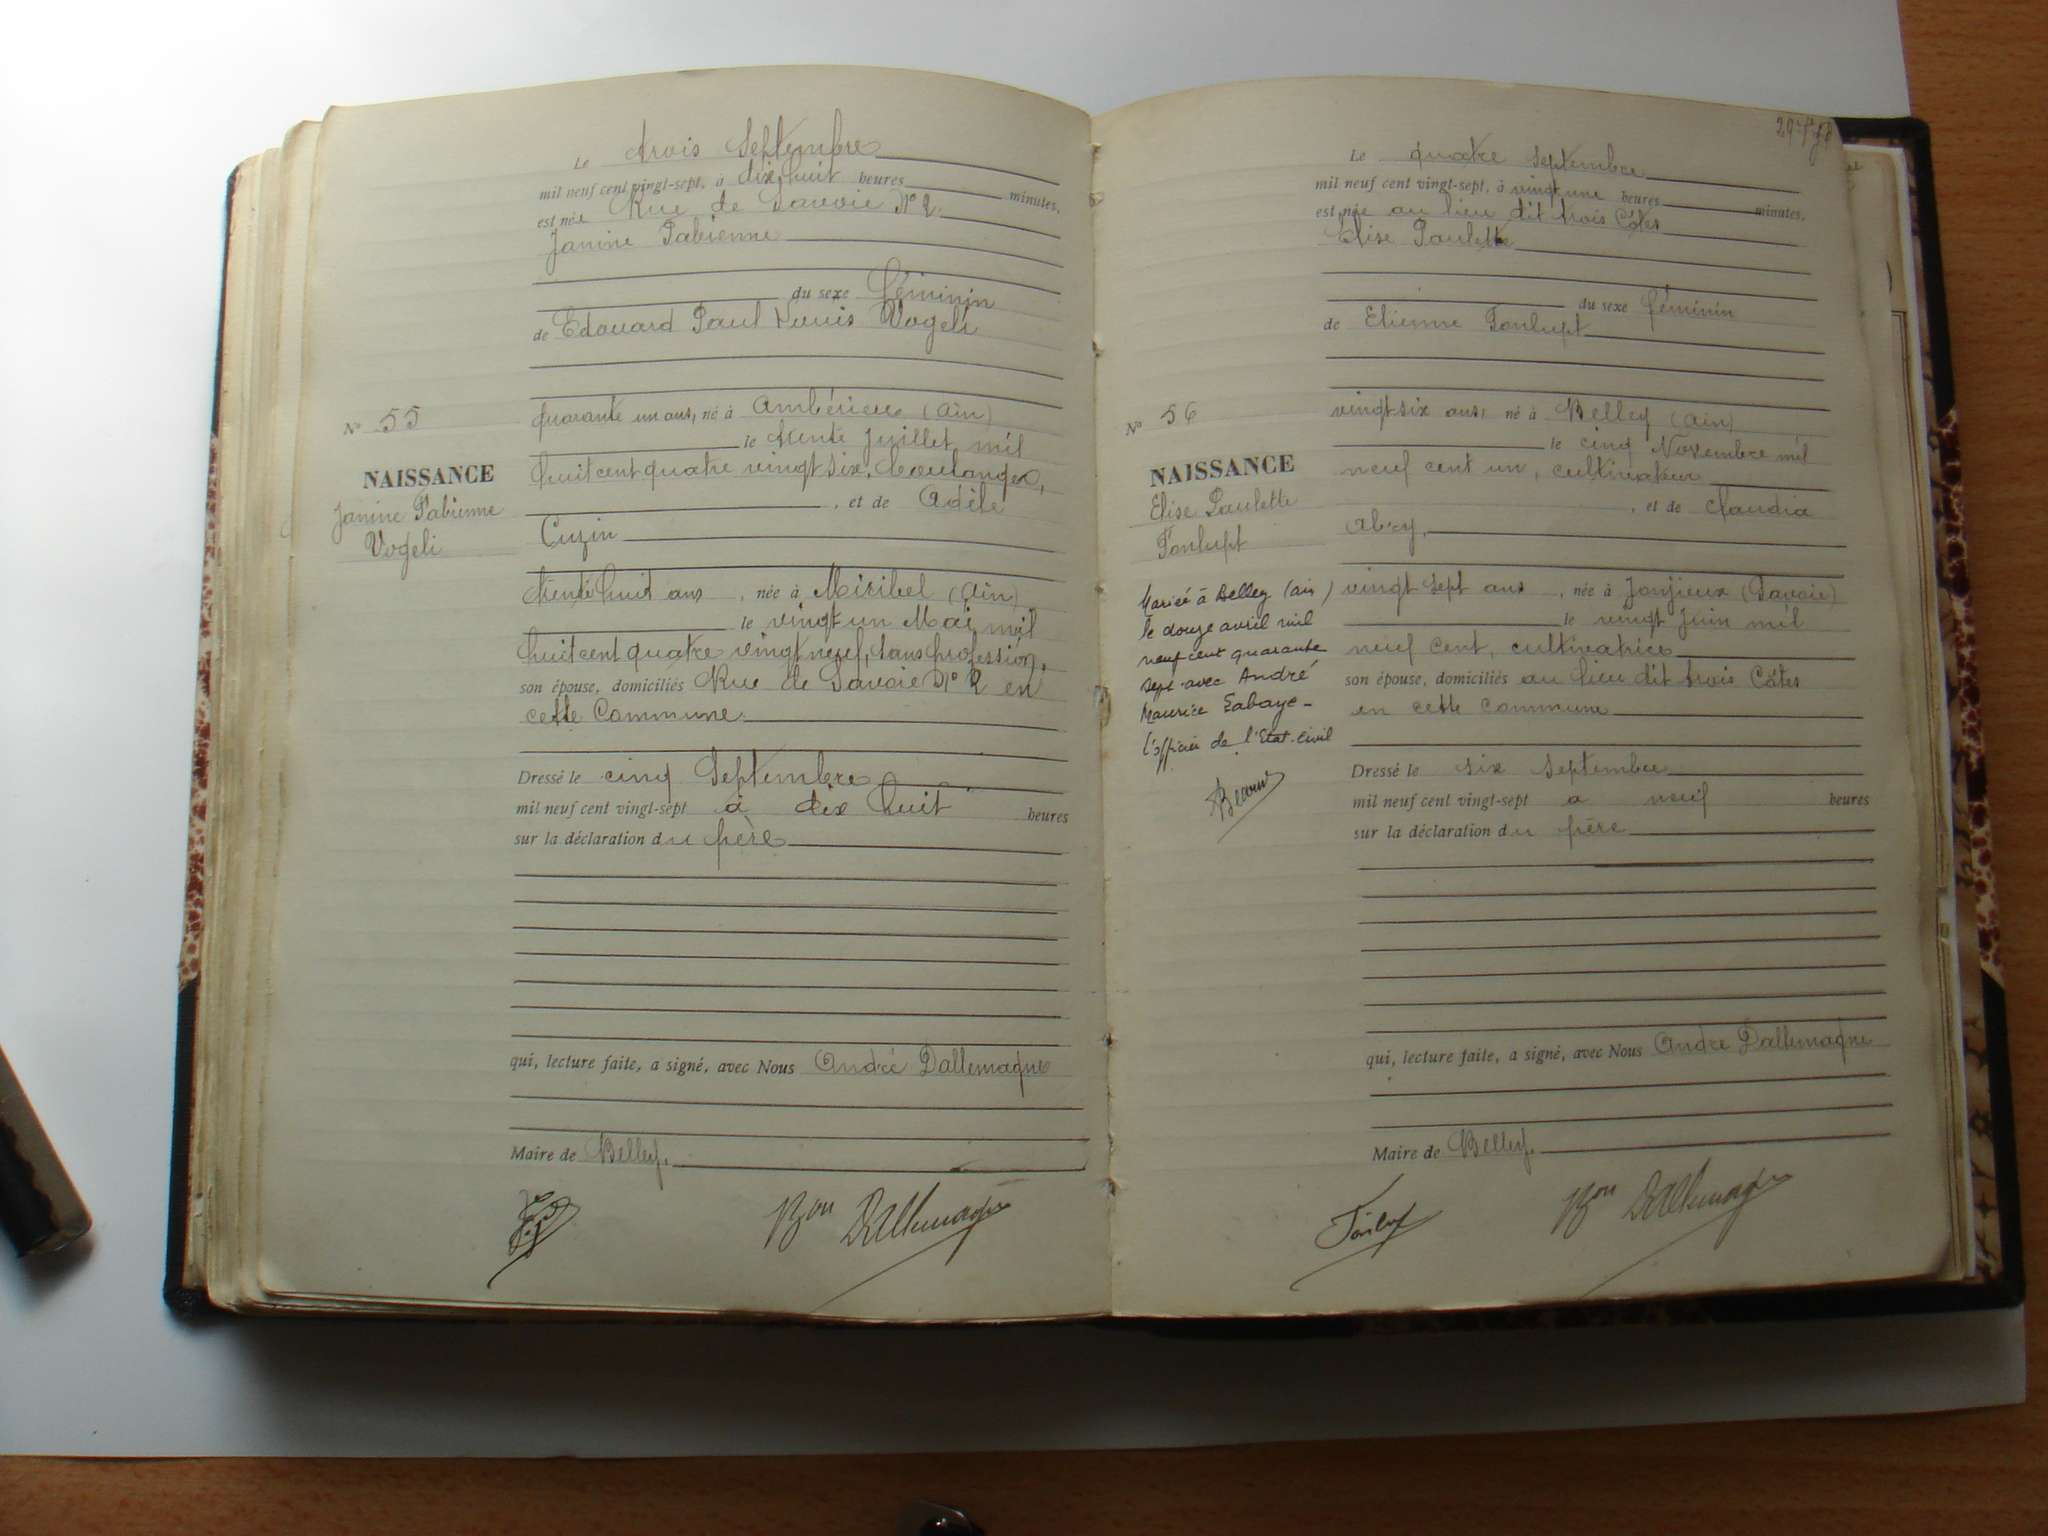 Le trois Septembre
mil neuf cent vingt-sept, à dix huit heures minutes,
est née Rue de Savoie No 2.
Janine Fabienne
du sexe féminin
de Edouard Paul Louis Vogeli
No 55
quarante un ans, né à Ambérieu (Ain)
le trente Juillet mil
huit cent quatre vingt six, boulanger,
NAISSANCE
Janine Fabienne
Vogeli
, et de Adèle
Cuzin
trente huit ans, née à Miribel (Ain)
le vingt un Mai mil
huit cent quatre vingt neuf, sans profession,
son épouse, domiciliés Rue de Savoie No 2 en
cette Commune.
Dressé le cinq Septembre
mil neuf cent vingt-sept à dix huit heures
sur la déclaration du père
qui, lecture faite, a signé, avec Nous André Dallemagne
Maire de Belley.
Bon Dallemagne
Le quatre Septembre
mil neuf cent vingt-sept, à vingt une heures minutes,
est née au lieu dit trois Côtes
Elise Paulette
du sexe féminin
de Etienne Fonlupt
No 56
vingt six ans, né à Belley (Ain)
le cinq Novembre mil
neuf cent un, cultivateur
NAISSANCE
Elise Paulette
Fonlupt
, et de Claudia
vingt sept ans, née à Jonjieux (Savoie)
le vingt Juin mil
neuf cent, cultivatrice
son épouse, domiciliés au lieu dit trois Côtes
en cette commune
Mariée à Belley (ain)
le douze avril mil
neuf cent quarante
sept avec André
Maurice Labaye -
L'officier de l'Etat-civil
Dressé le six Septembre
mil neuf cent vingt-sept à neuf heures
sur la déclaration du père
qui, lecture faite, a signé, avec Nous André Dallemagne
Maire de Belley.
Bon Dallemagne